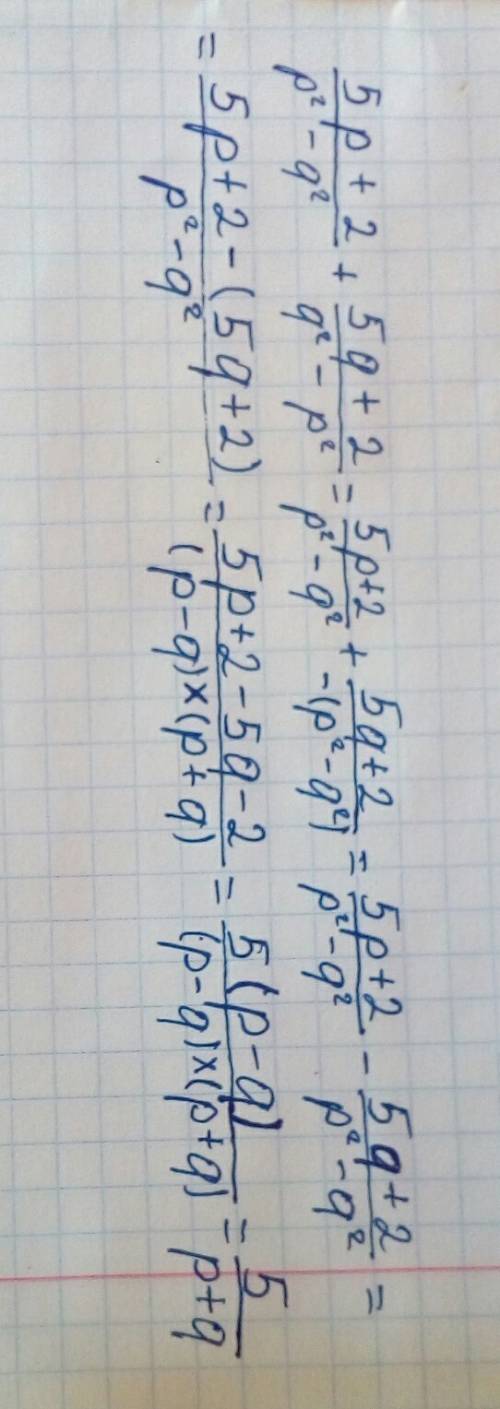 (5p + 2)/(p² - q²) + (5q + 2)/(q² - p²) = (5p+2)/(p² - q²) + (5q+2)/(-(p² - q²)) = (5p+2)/(p² - q²) - (5q+2)/(p² - q²) =
= (5p+2-(5q+2))/(p² - q²) = (5p+2-5q-2)/((p-q)×(p+q)) = (5(p-q))/((p-q)×(p+q)) = 5/(p+q)